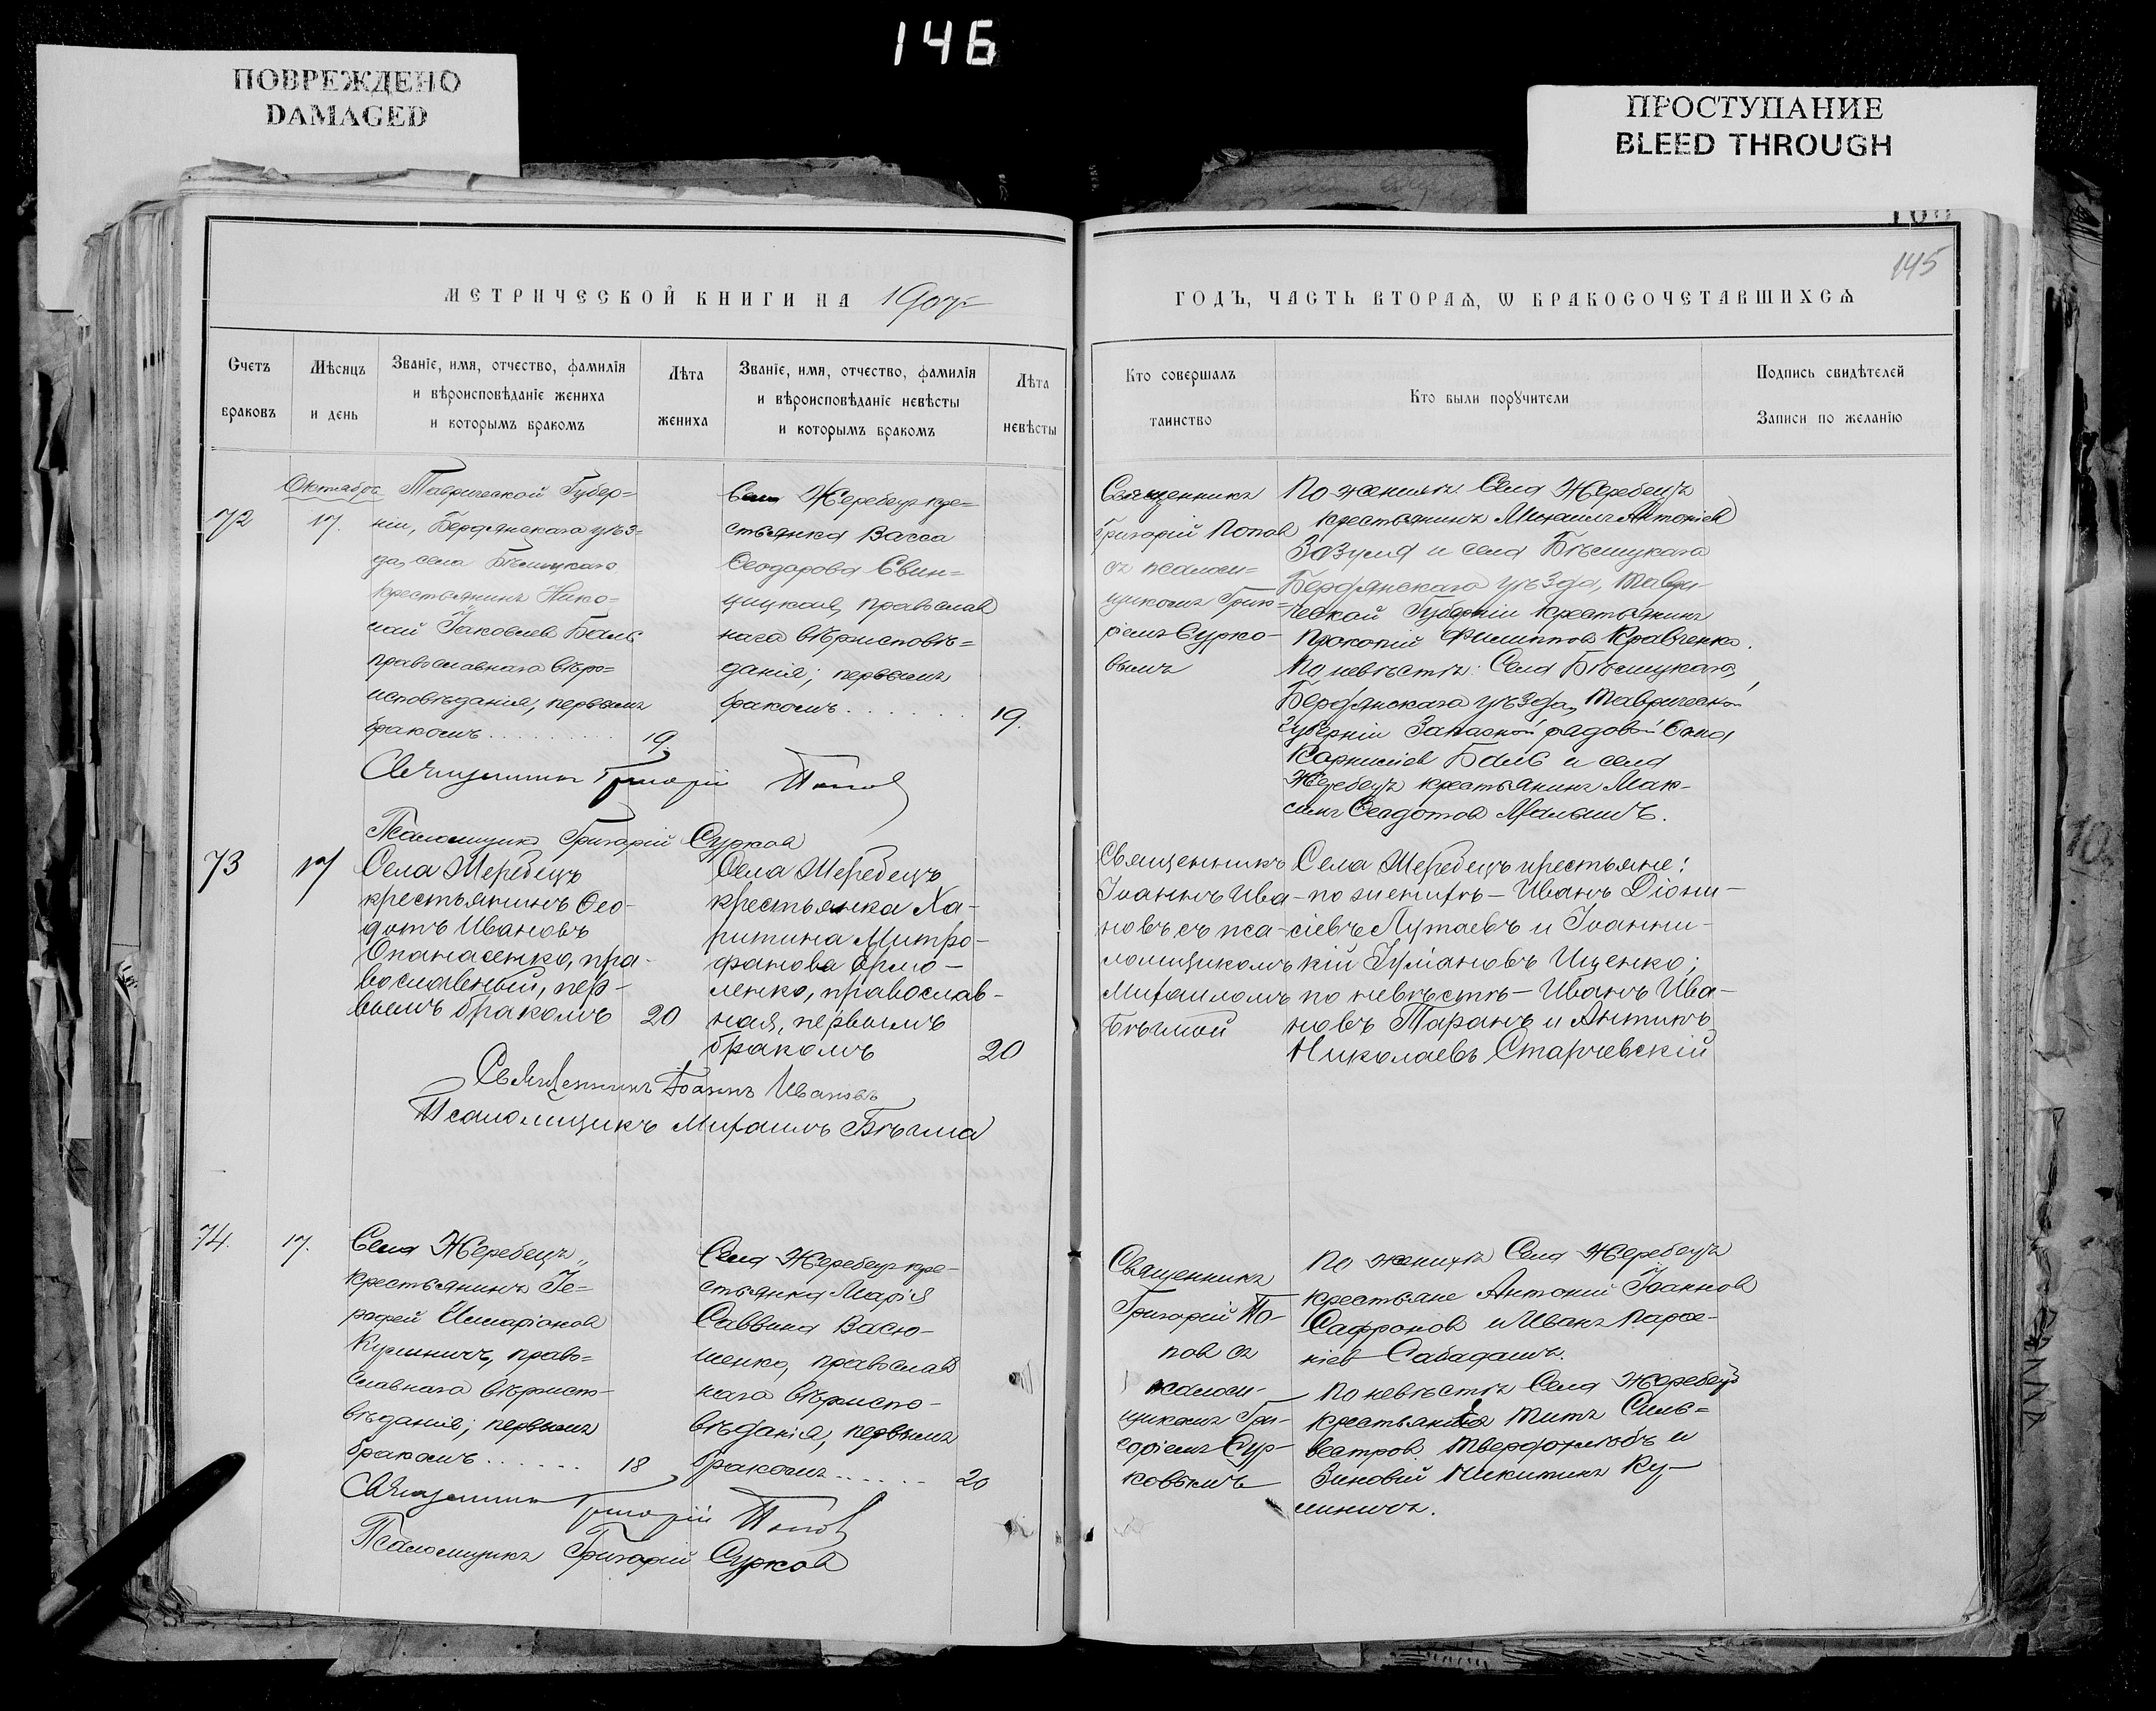 146
ПОВРЕЖДЕНО
DAMAGED
ПРОСТУПАНИЕ
BLEED THROUGH
145
МЕТРИЧЕСКОЙ КНИГИ НА 1907
ГОДЪ, ЧАСТЬ ВТОРАѦ, Ѡ БРАКОСОЧЕТАВШИХСѦ
Счетъ
браковъ
Мѣсяцъ
и день
Званіе, имя, отчество, фамилія
и вѣроисповѣданіе жениха
и которымъ бракомъ
Лѣта
жениха
Званіе, имя, отчество, фамилія
и вѣроисповѣданіе невѣсты
и которымъ бракомъ
Лѣта
невѣсты
Кто совершалъ
таинство
Кто были порꙋчители
Подпись свидѣтелей
Записи по желанію
72
Октябрь
17.
Таврической Губер=
ніи, Бердянскаго уѣз=
да, села Бѣлицкаго
крестьянинъ Нико=
лай Іаковлев Баль
православнаго вѣро=
исповѣданія, первымъ
бракомъ
19.
Села Жеребецъ кре=
стьянка Васса
Ѳеодорова Свин=
цицкая, православ
наго вѣрисповѣ=
данія; первымъ
бракомъ
19.
Священникъ
Григорій Попов
съ псалом=
щикомъ Григо=
ріемъ Сурко-
вымъ
По женихѣ Села Жеребецъ
крестьянинъ Михаилъ Антоніев
Зозуля и села Бѣлицкаго
Бердянскаго уѣзда, Таври-
ческой Губерніи крестьянинъ
Прокопій Филиппов Кравченко.
По невѣстѣ: Села Бѣлицкаго,
Бердянскаго уѣзда, Таврической
Губерніи Запасной рядовой
Корнилiев Баль и села
Жеребецъ крестьянинъ Мак-
симъ Ѳеодотов
Священникъ Григорій Попов
Псаломщикъ Григорій Сурков
73
17
Села Жеребецъ
крестьянинъ Ѳео-
дотъ Ивановъ
Опанасенко, пра-
вославный, пер-
вымъ бракомъ
20
Села Жеребецъ
крестьянка Ха-
ритина Митро-
фанова Ермо-
ленко, православ-
ная, первымъ
бракомъ
20
Священникъ
Іоаннъ Ива-
новъ съ пса-
ломщикомъ
Михаиломъ
Бѣлмой
Села Жеребецъ крестьяне:
по женихѣ — Иванъ Діони-
сіевъ Лутаевъ и Іоанни-
кій Іуліановъ Ищенко;
по невѣстѣ — Иванъ Ива-
новъ Таранъ и Антипъ
Николаевъ Старчевскій
Священникъ Іоаннъ Ивановъ
Псаломщикъ Михаилъ Бѣлма
74.
17.
Села Жеребецъ
крестьянинъ Іе-
рофей Илларіонов
Кулиничъ, право=
славнаго вѣриспо-
вѣданія; первымъ
бракомъ
18
Села Жеребецъ кре-
стьянка Марія
Саввина Васю-
ченко, православ
наго вѣриспо-
вѣданія, первымъ
бракомъ
20
Священникъ
Григорій По-
пов съ
псалом-
щикомъ Гри-
горіемъ Сур-
ковымъ
По женихѣ Села Жеребецъ
крестьяне Антоній Іоаннов
Сафронов и Иванъ Парѳе-
ніев Сабадашъ.
По невѣстѣ Села Жеребецъ
крестьяне Титъ Силь=
вестров Твердохлѣбъ и
Зиновій Никитинъ Ку-
линичъ.
Священникъ Григорій Попов
Псаломщикъ Григорій Сурков